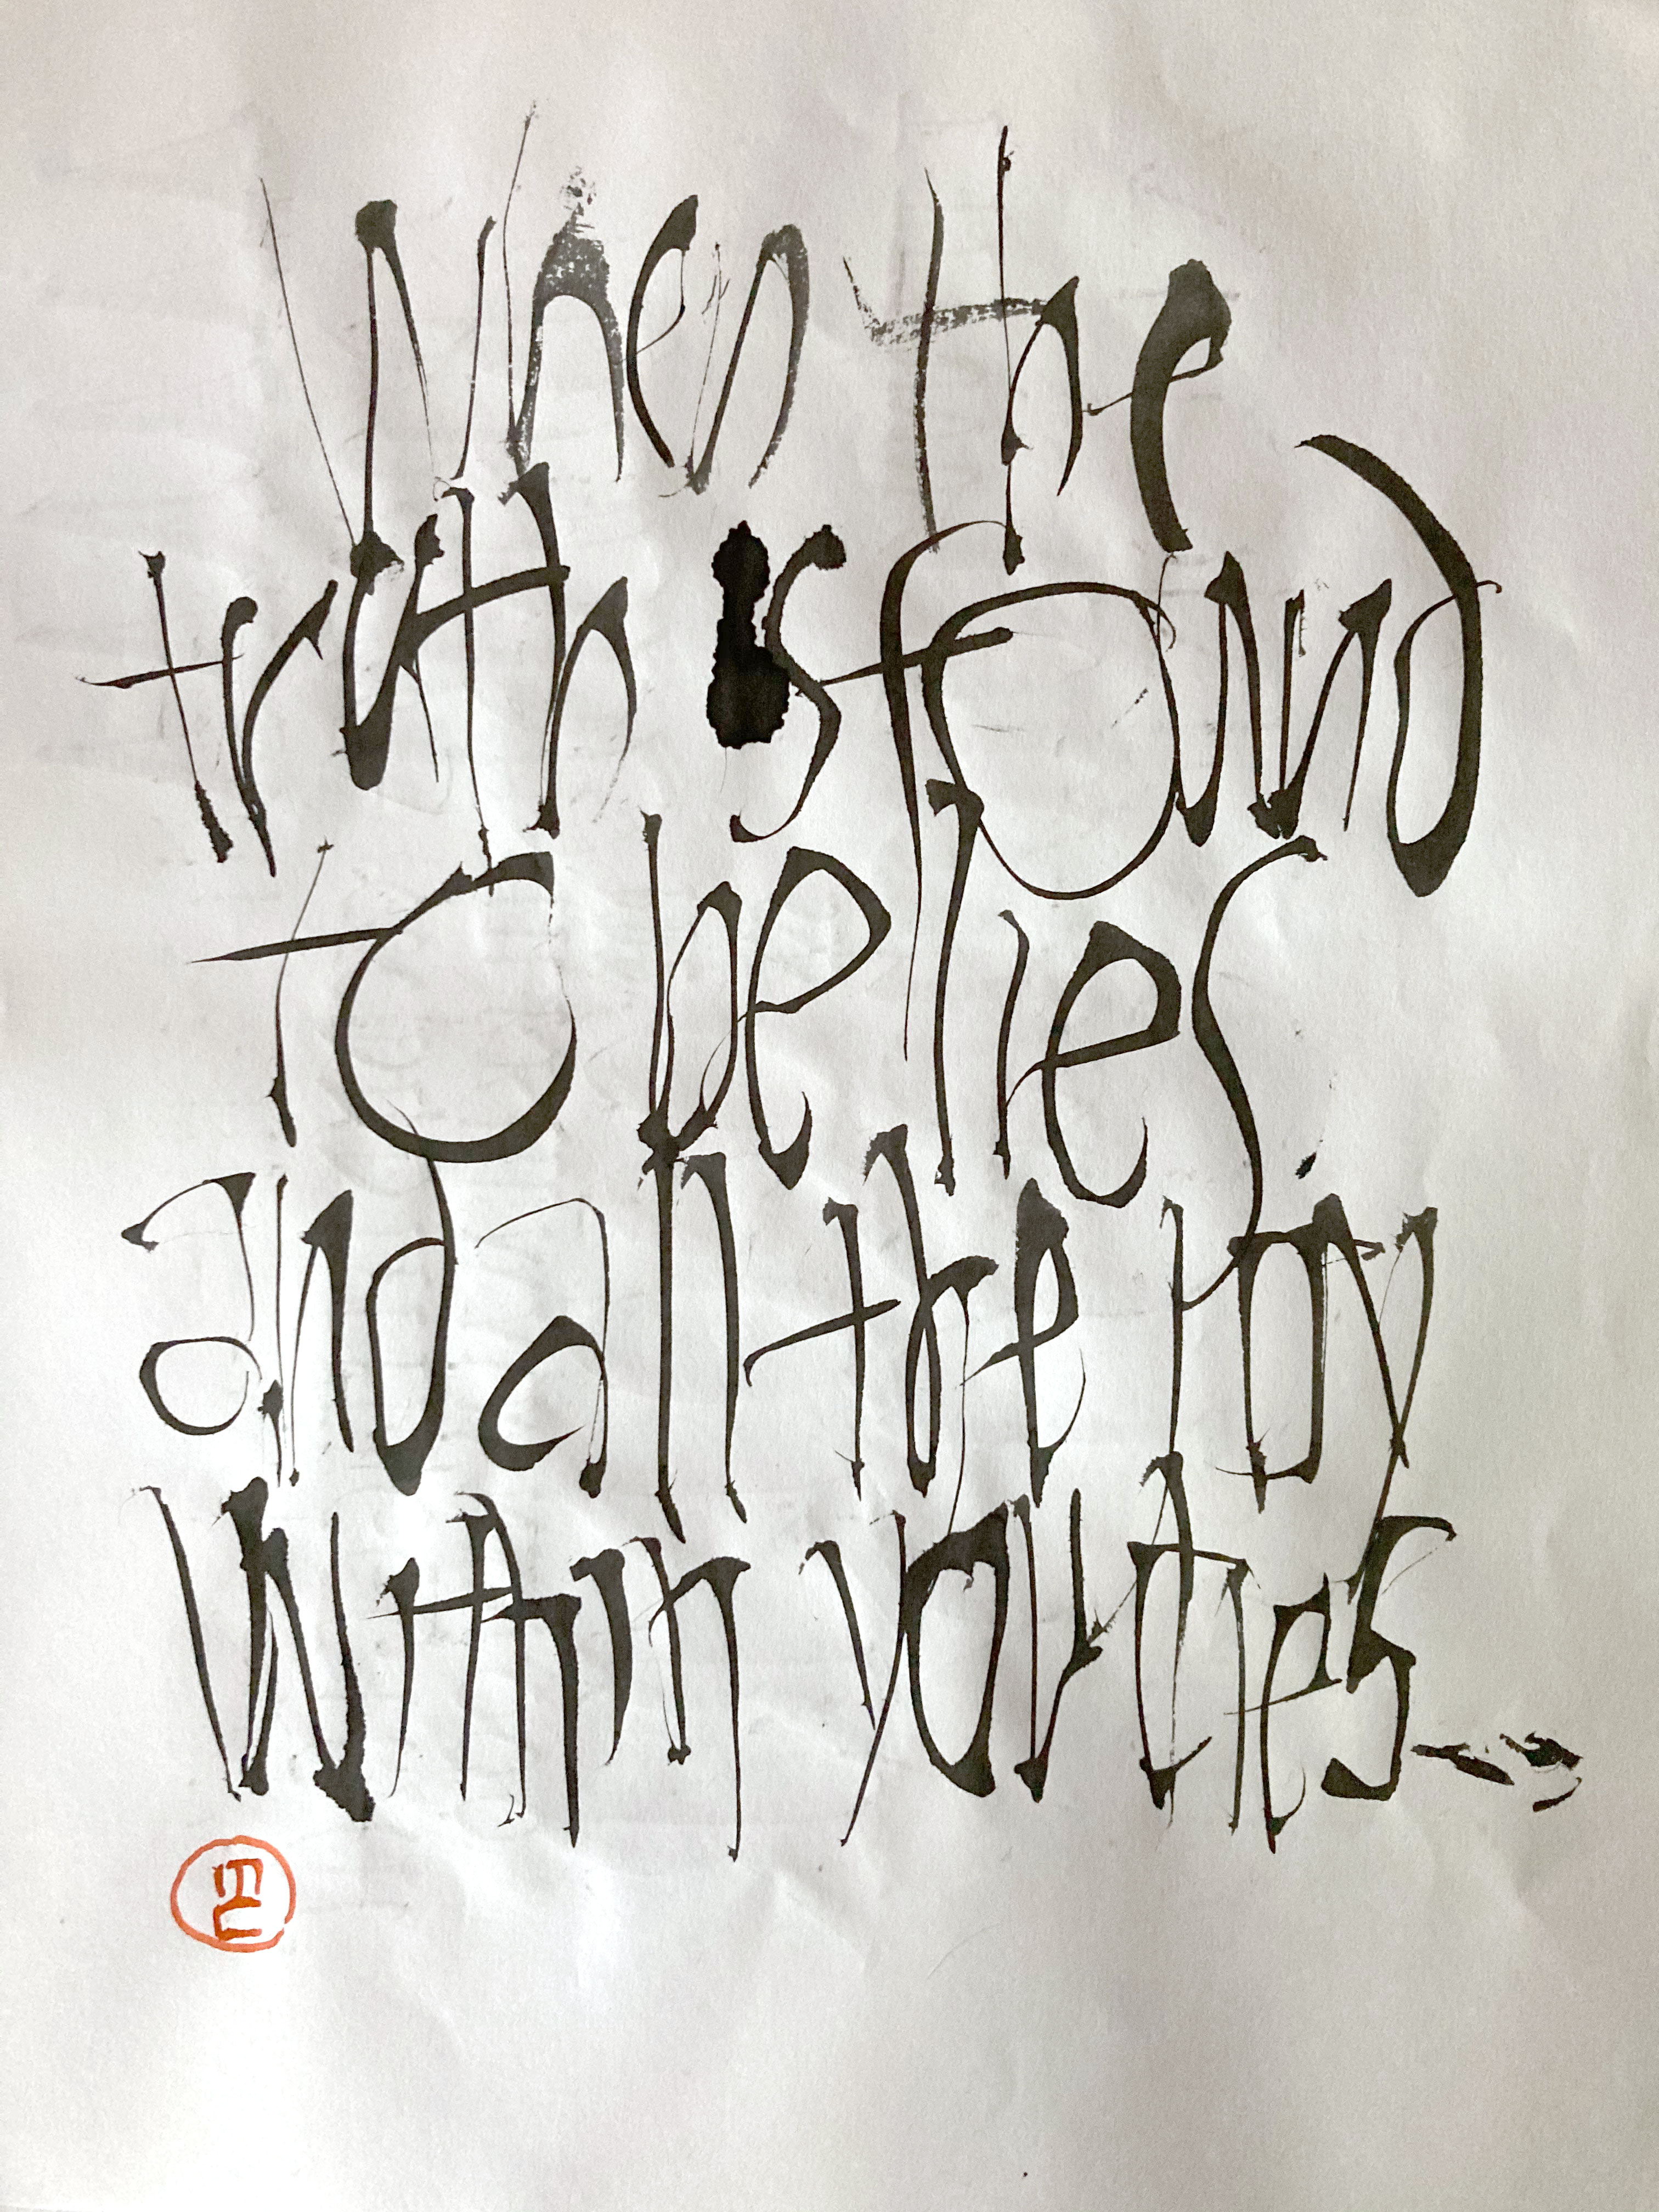 When the
truth is found
to be lies.
and all the joy
within you dies...